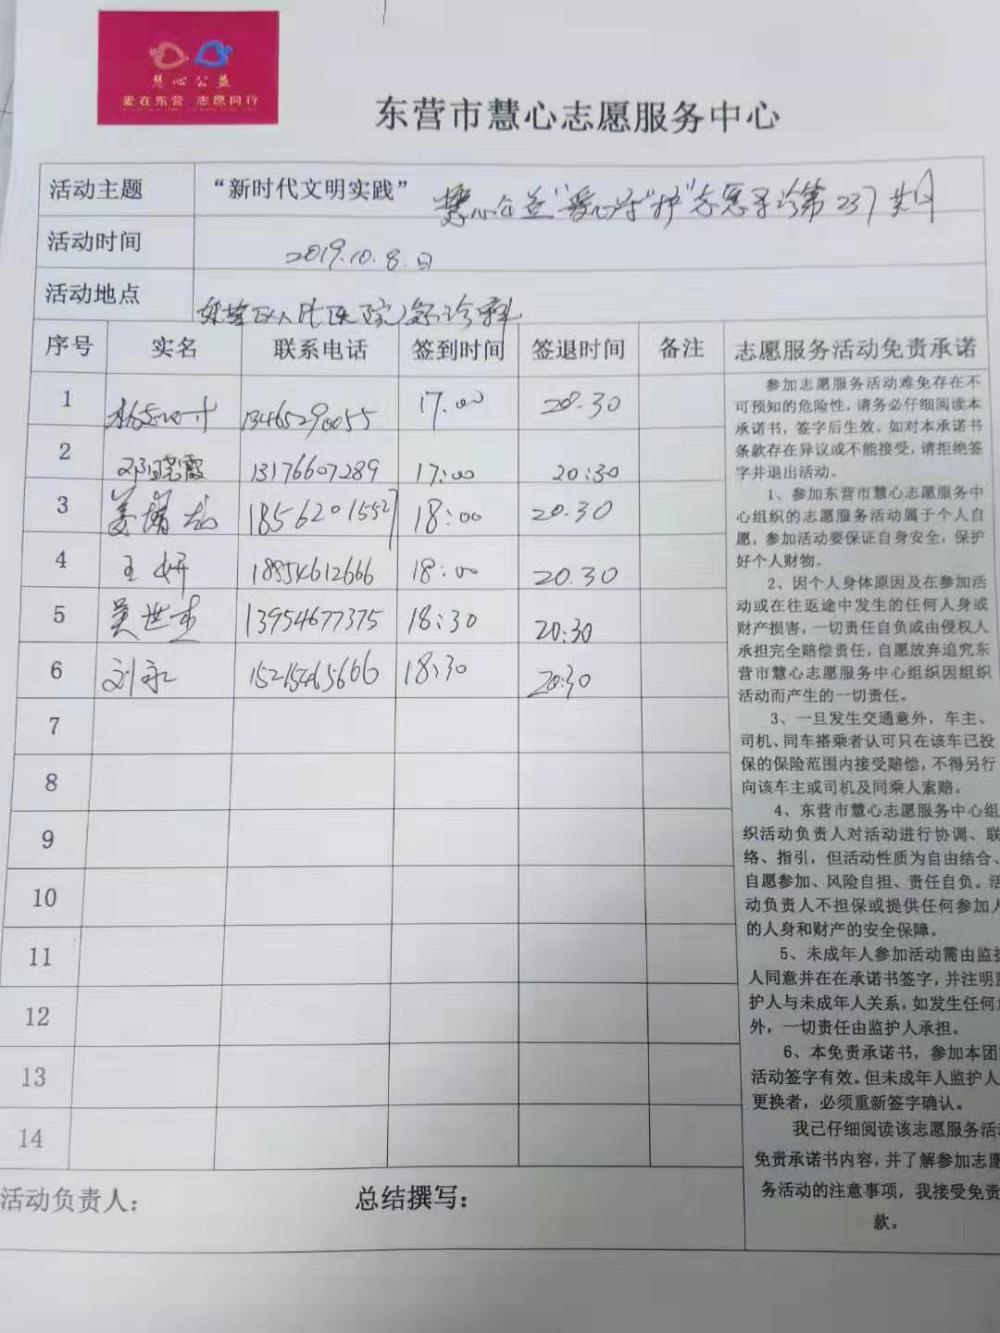 慧心公益
爱在东营 志愿同行
东营市慧心志愿服务中心
活动主题 “新时代文明实践” 慧心公益“爱心守护”志愿导诊第237期
活动时间 2019.10.8.日
活动地点 东营区人民医院急诊科
序号 实名 联系电话 签到时间 签退时间 备注 志愿服务活动免责承诺
1 13465290055 17.00 20.30
2 邓晓霞 13176607289 17:00 20:30
3 姜 18562015527 18:00 20.30
4 王妍 18854612666 18:00 20.30
5 吴世 13954677375 18:30 20:30
6 刘永 15215465666 18:30 20:30
7
8
9
10
11
12
13
14
参加志愿服务活动难免存在不
可预知的危险性，请务必仔细阅读本
承诺书，签字后生效。如对本承诺书
条款存在异议或不能接受，请拒绝签
字并退出活动。
1、参加东营市慧心志愿服务中
心组织的志愿服务活动属于个人自
愿，参加活动要保证自身安全，保护
好个人财物。
2、因个人身体原因及在参加活
动或在往返途中发生的任何人身或
财产损害，一切责任自负或由侵权人
承担完全赔偿责任，自愿放弃追究东
营市慧心志愿服务中心组织因组织
活动而产生的一切责任。
3、一旦发生交通意外，车主、
司机、同车搭乘者认可只在该车已投
保的保险范围内接受赔偿，不得另行
向该车主或司机及同乘人索赔。
4、东营市慧心志愿服务中心组
织活动负责人对活动进行协调、联
络、指引，但活动性质为自由结合、
自愿参加、风险自担、责任自负。活
动负责人不担保或提供任何参加人
的人身和财产的安全保障。
5、未成年人参加活动需由监护
人同意并在在承诺书签字，并注明监
护人与未成年人关系，如发生任何意
外，一切责任由监护人承担。
6、本免责承诺书，参加本团
活动签字有效。但未成年人监护人
更换者，必须重新签字确认。
我已仔细阅读该志愿服务活动
免责承诺书内容，并了解参加志愿
务活动的注意事项，我接受免责
款。
活动负责人： 总结撰写：